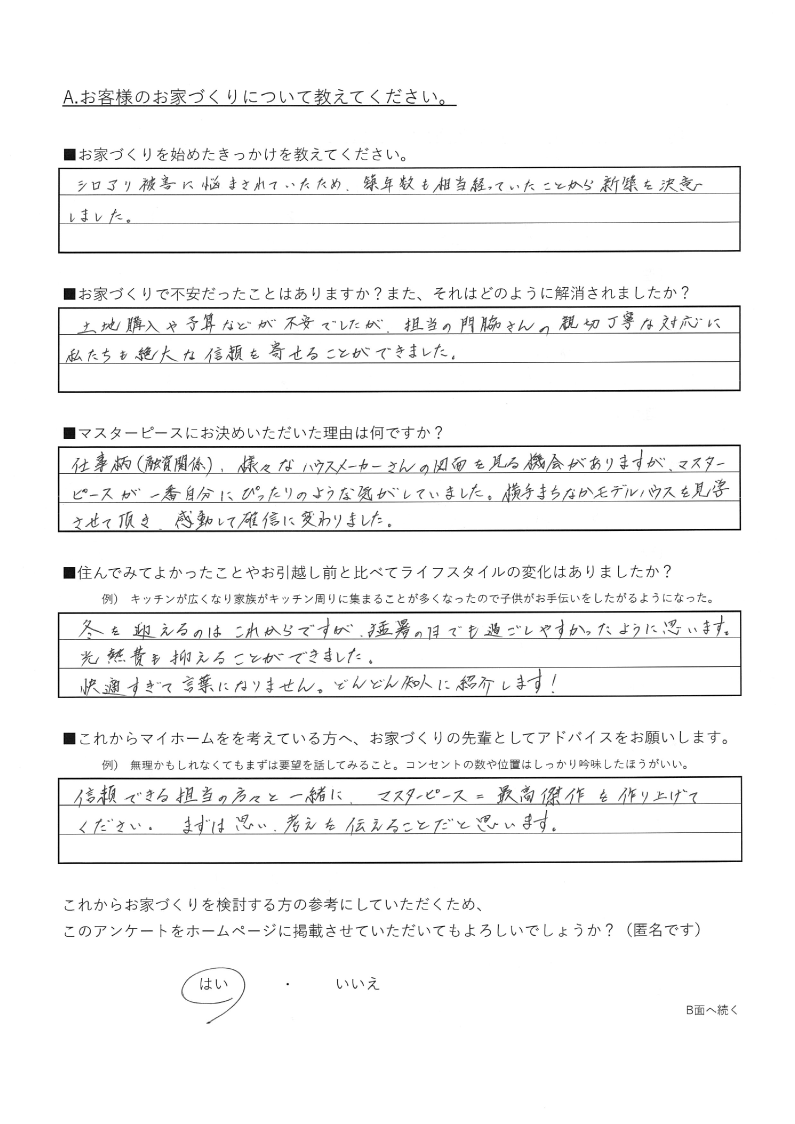 A.お客様のお家づくりについて教えてください。
■お家づくりを始めたきっかけを教えてください。
シロアリ被害に悩まされていたため、築年数も相当経っていたことから新築を決意
しました。
■お家づくりで不安だったことはありますか?また、それはどのように解消されましたか?
土地購入や予算などが不安でしたが、担当の門脇さんの親切丁寧な対応に
私たちも絶大な信頼を寄せることができました。
■マスターピースにお決めいただいた理由は何ですか?
仕事柄(融資関係)、様々なハウスメーカーさんの図面を見る機会がありますが、マスター
ピースが一番自分にぴったりのような気がしていました。横手まちなかモデルハウスを見学
させて頂き、感動して確信に変わりました。
■住んでみてよかったことやお引越し前と比べてライフスタイルの変化はありましたか?
例) キッチンが広くなり家族がキッチン周りに集まることが多くなったので子供がお手伝いをしたがるようになった。
冬を迎えるのはこれからですが、猛暑の日でも過ごしやすかったように思います。
光熱費も抑えることができました。
快適すぎて言葉になりません。どんどん知人に紹介します!
■これからマイホームをを考えている方へ、お家づくりの先輩としてアドバイスをお願いします。
例) 無理かもしれなくてもまずは要望を話してみること。コンセントの数や位置はしっかり吟味したほうがいい。
信頼できる担当の方々と一緒に、マスターピース=最高傑作を作り上げて
ください。 まずは思い、考えを伝えることだと思います。
これからお家づくりを検討する方の参考にしていただくため、
このアンケートをホームページに掲載させていただいてもよろしいでしょうか?(匿名です)
はい ・ いいえ
B面へ続く